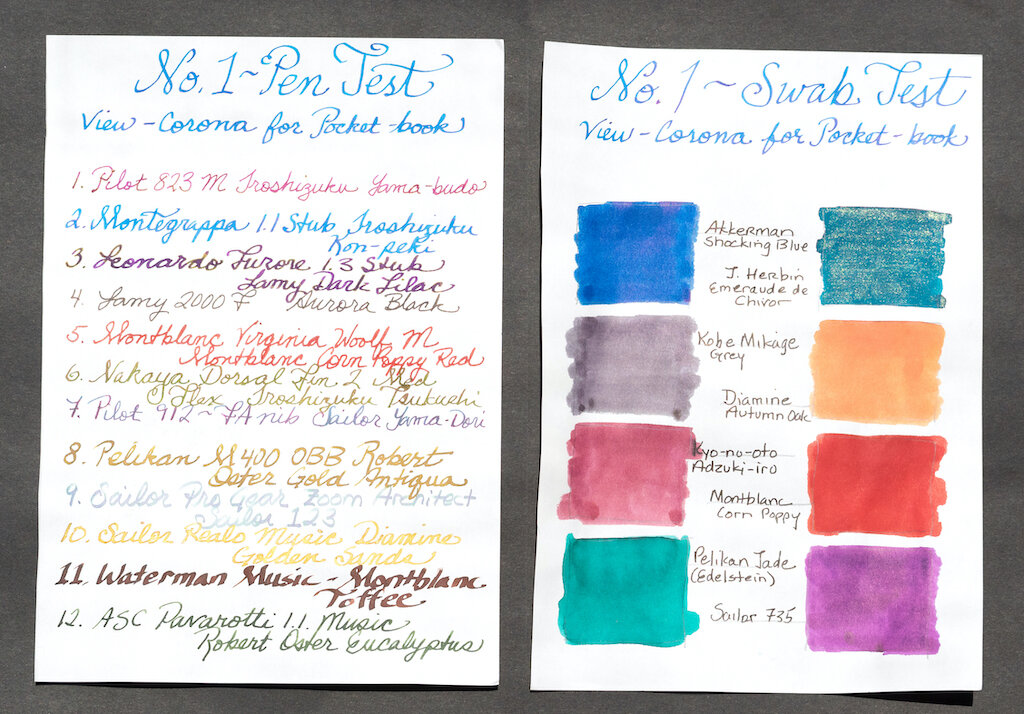 No. 1 ~ Pen Test
View - Corona for Pocket - book
1. Pilot 823 M Iroshizuku Yama-budo
2. Montegrappa 1.1 Stub Iroshizuku
Kon-peki
3. Leonardo Furore 1.3 Stub
Lamy Dark Lilac
4. Lamy 2000 F Aurora Black
5. Montblanc Virginia Woolf M
Montblanc Corn Poppy Red
6. Nakaya Dorsal Fin 2 Med
Flex Iroshizuku Tsukushi
7. Pilot 912 ~ FA nib Sailor Yama-Dori
8. Pelikan M400 OBB Robert
Oster Gold Antiqua
9. Sailor Pro Gear Zoom Architect
Sailor 123
10. Sailor Realo Music Diamine
Golden Sands
11. Waterman Music - Montblanc
Toffee
12. ASC Pavarotti 1.1. Music
Robert Oster Eucalyptus
No. 1 ~ Swab Test
View - Corona for Pocket - book
Akkerman
Shocking Blue
J. Herbin
Emeraude de
Chivor
Kobe Mikage
Grey
Diamine
Autumn Oak
Kyo-no-oto
Adzuki-iro
Montblanc
Corn Poppy
Pelikan Jade
(Edelstein)
Sailor 735